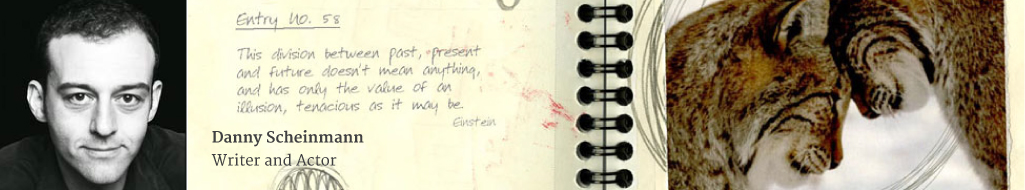 Entry no. 58
This division between past, present
and future doesn't mean anything,
and has only the value of an
illusion, tenacious as it may be.
Einstein
Danny Scheinmann
Writer and Actor